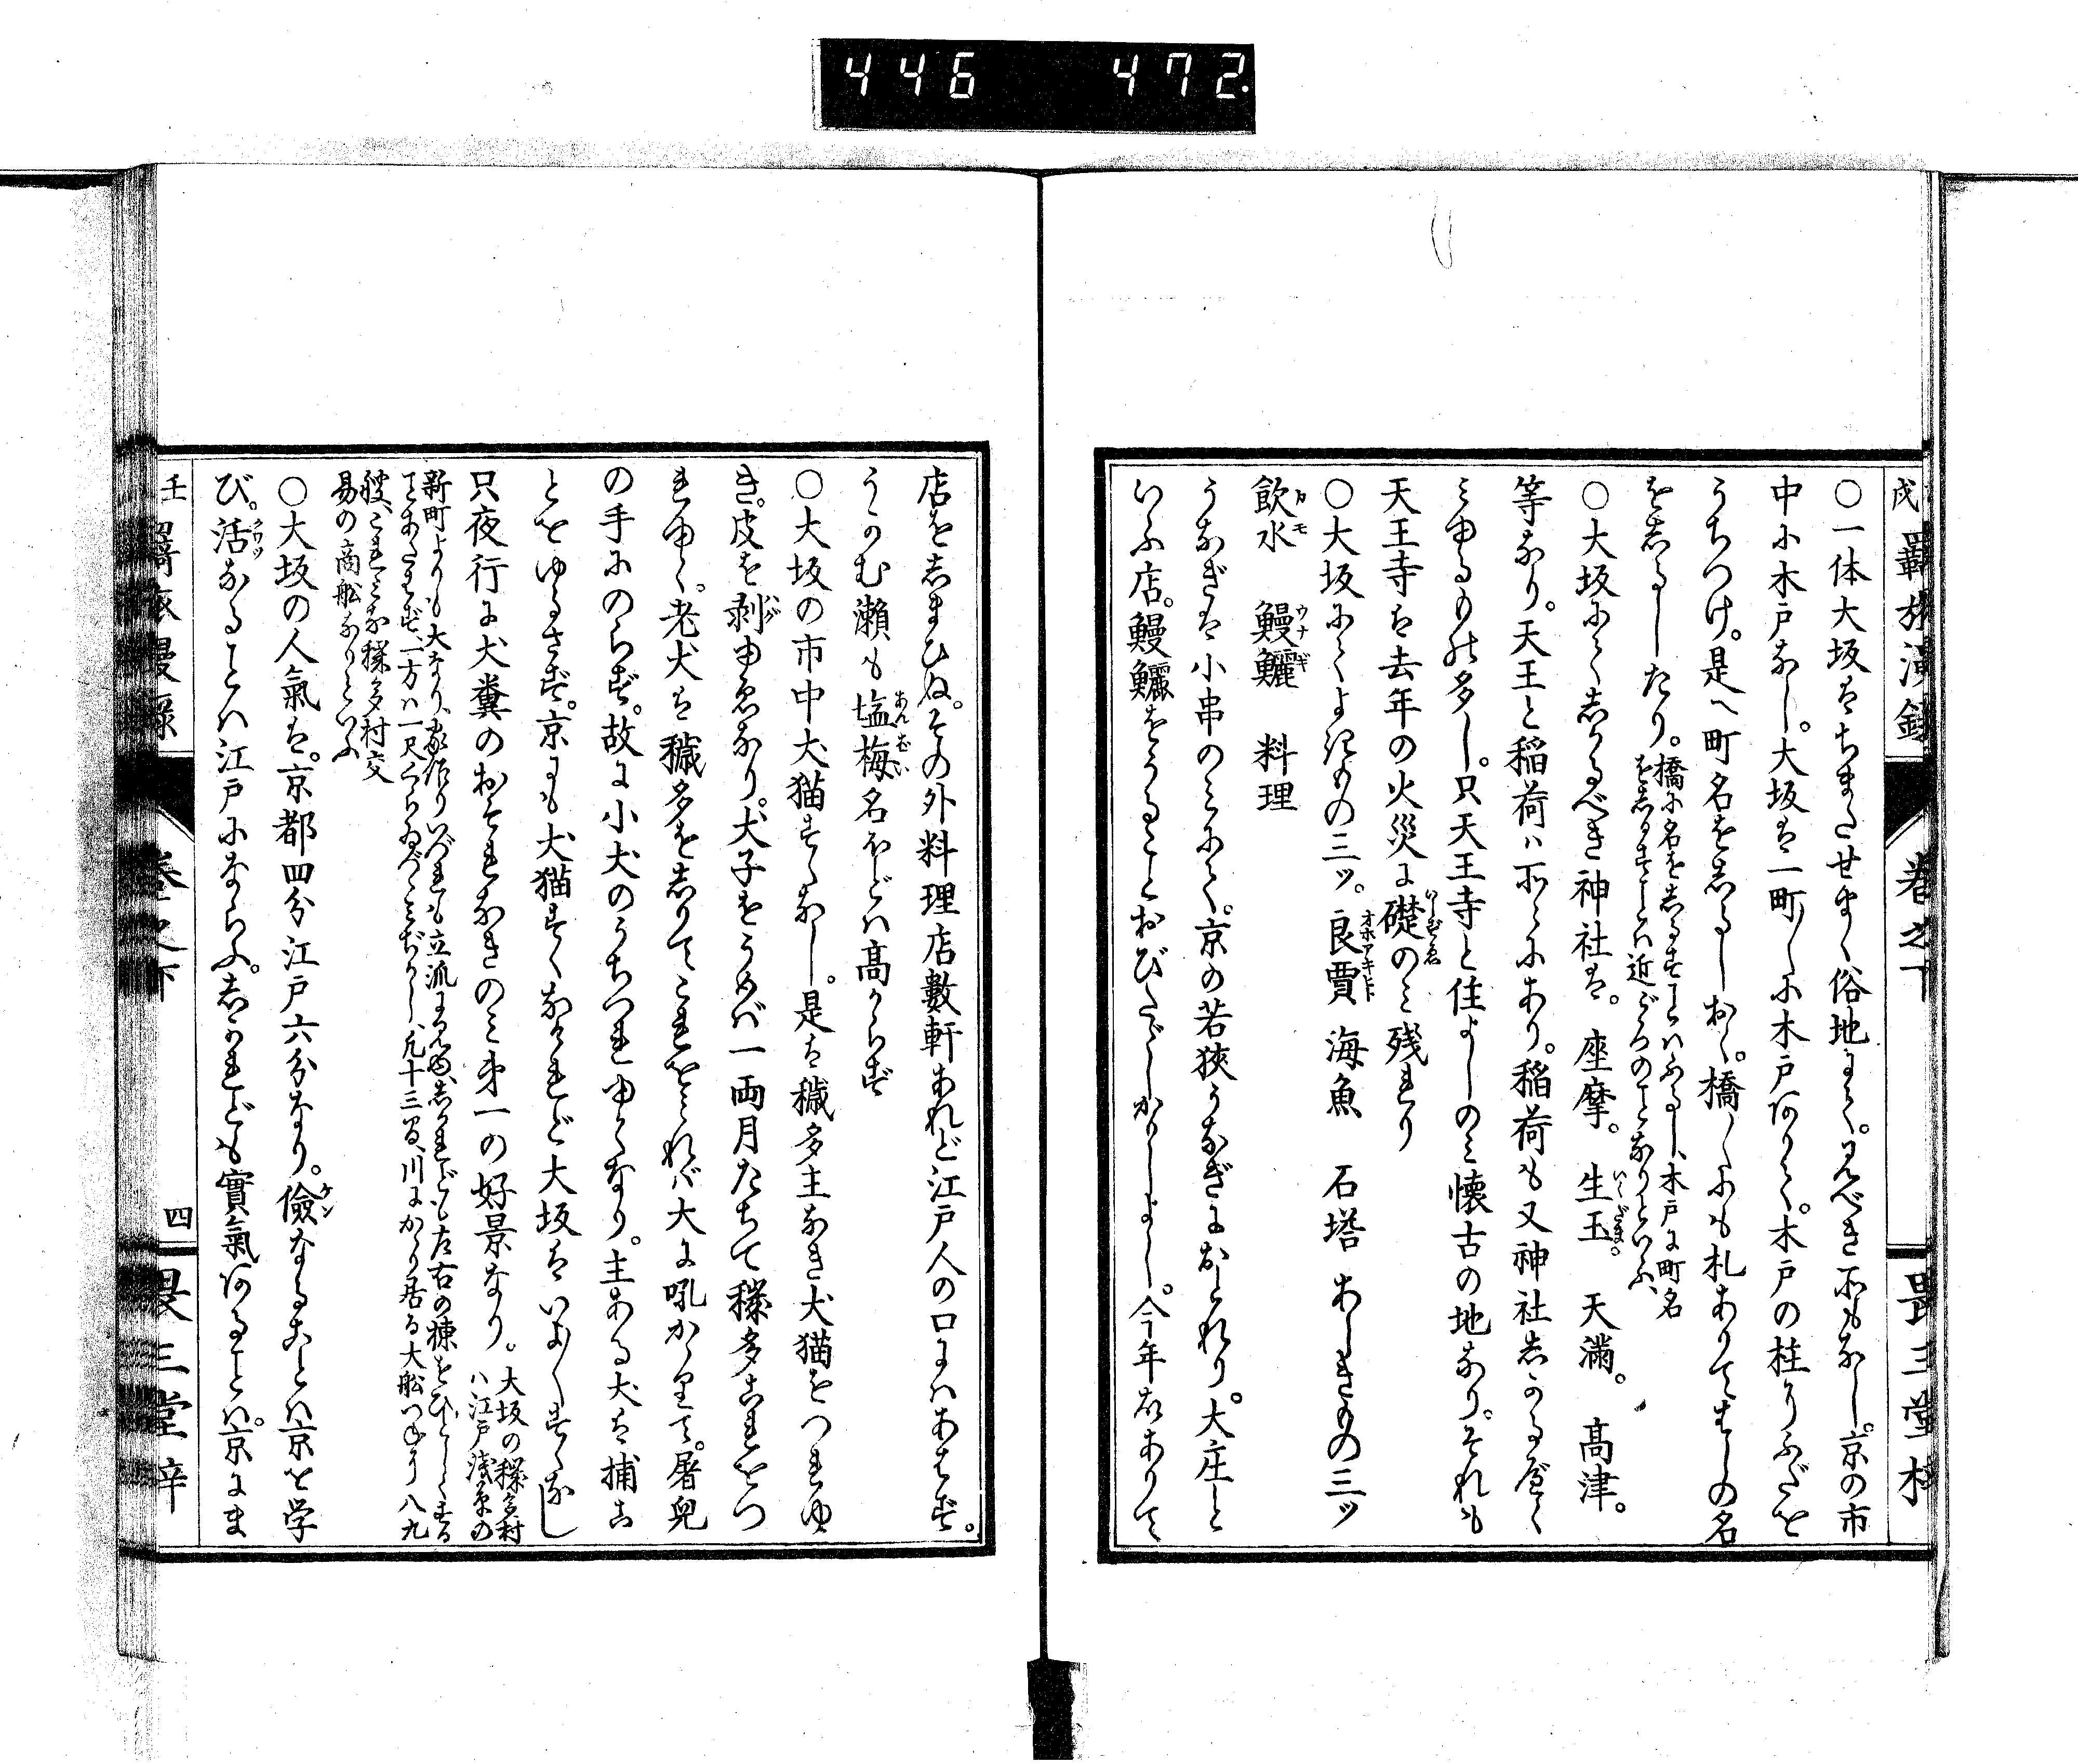 446 472
戌 羇旅漫録 巻之下 畏三堂梓
○一体大坂はちまたせまく俗地にて。見べき所もなし。京の市
中に木戸なし。大坂は一町〳〵に木戸ありて。木戸の柱にふだを
うちつけ。是へ町名をしるしおく。橋〳〵にも札ありてはしの名
をしるしたり。橋に名をしるすことはふるし、木戸に町名
をしるすことは近ごろのことなりといふ、
○大坂にてしかるべき神社は。座摩。生玉 天満。高津。
いくだま。
等なり。天王と稲荷ハ所々にあり。稲荷も又神社しかるべく
みゆるもの多し。只天王寺と住よしのみ懐古の地なり。それも
天王寺は去年の火災に礎のみ残れり
いしずゑ
○大坂にてよきもの三ツ。良賈 海魚 石塔 あしきもの三ツ
オホアキヒト
飲水 鰻鱺 料理
カモ ウナギ
うなぎは小串のみにて。京の若狭うなぎにおとれり。大庄と
いふ店。鰻鱺をうることおびたゞしかりしよし。今年故ありて
店をしまひぬ。その外料理店數軒あれど江戸人の口にハあはず。
うかむ瀬も塩梅名ほどハ高からず
あんばい
○大坂の市中犬猫すくなし。是は穢多主なき犬猫をつれゆ
き。皮を剥ゆゑなり。犬子をうめバ一両月たちて穢多これをつ
ハグ
れゆく。老犬は穢多をしりてこれをみれバ大に吼かゝりて。屠兒
の手にのらず。故に小犬のうちつれゆくなり。主ある犬は捕こ
とをゆるさず。京にも犬猫すくなけれど大坂はいよ〳〵すくなし
只夜行に犬糞のおそれなきのみ第一の好景なり。大坂の穢多村
ハ江戸浅草の
新町よりも大なり、家作りいづれも立派に見ゆ、しかれども左右の棟をひとしくする
ことあたはず、一方ハ一尺くらゐづゝみぢかし、凡十三日、川にかゝり居る大船つねに八九
艘、これみな穢多村交
易の商船なりといふ
○大坂の人氣は。京都四分江戸六分なり。儉なることハ京を学
ケン
び。活なることハ江戸にならふ。しかれども實氣あることハ。京にま
クワツ
壬 羇旅漫録 巻之下 四 畏三堂梓